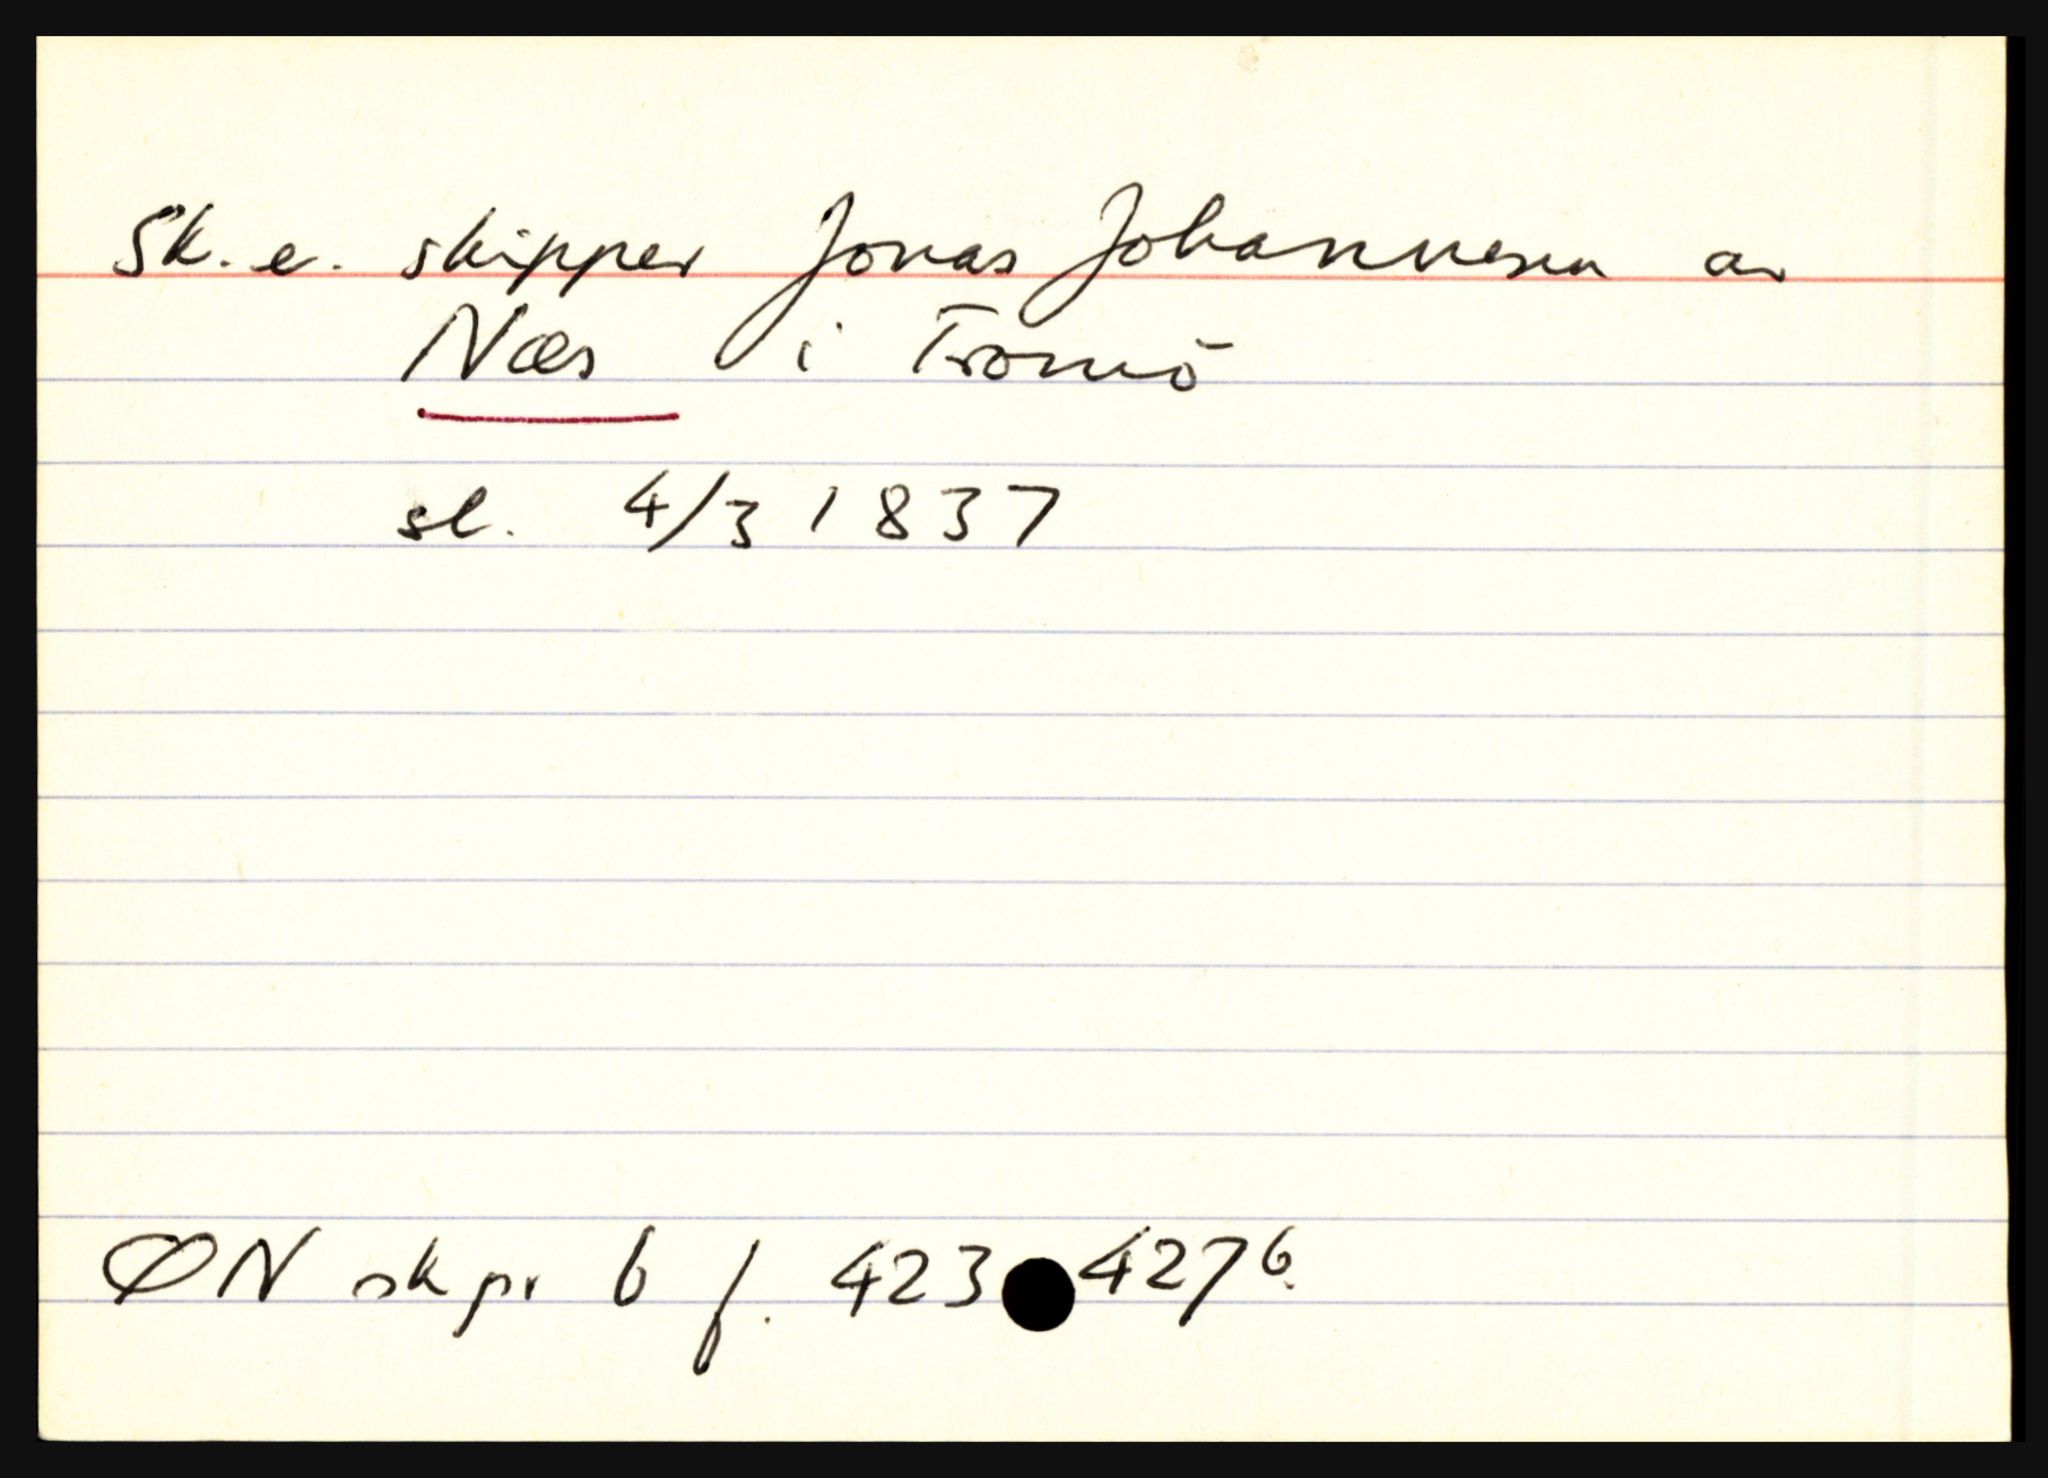 Sk. e. skipper Jonas Johannesen av
Næs i Tromö
sl. 4/3 1837
ØN skpr 6 f. 423 427 b.